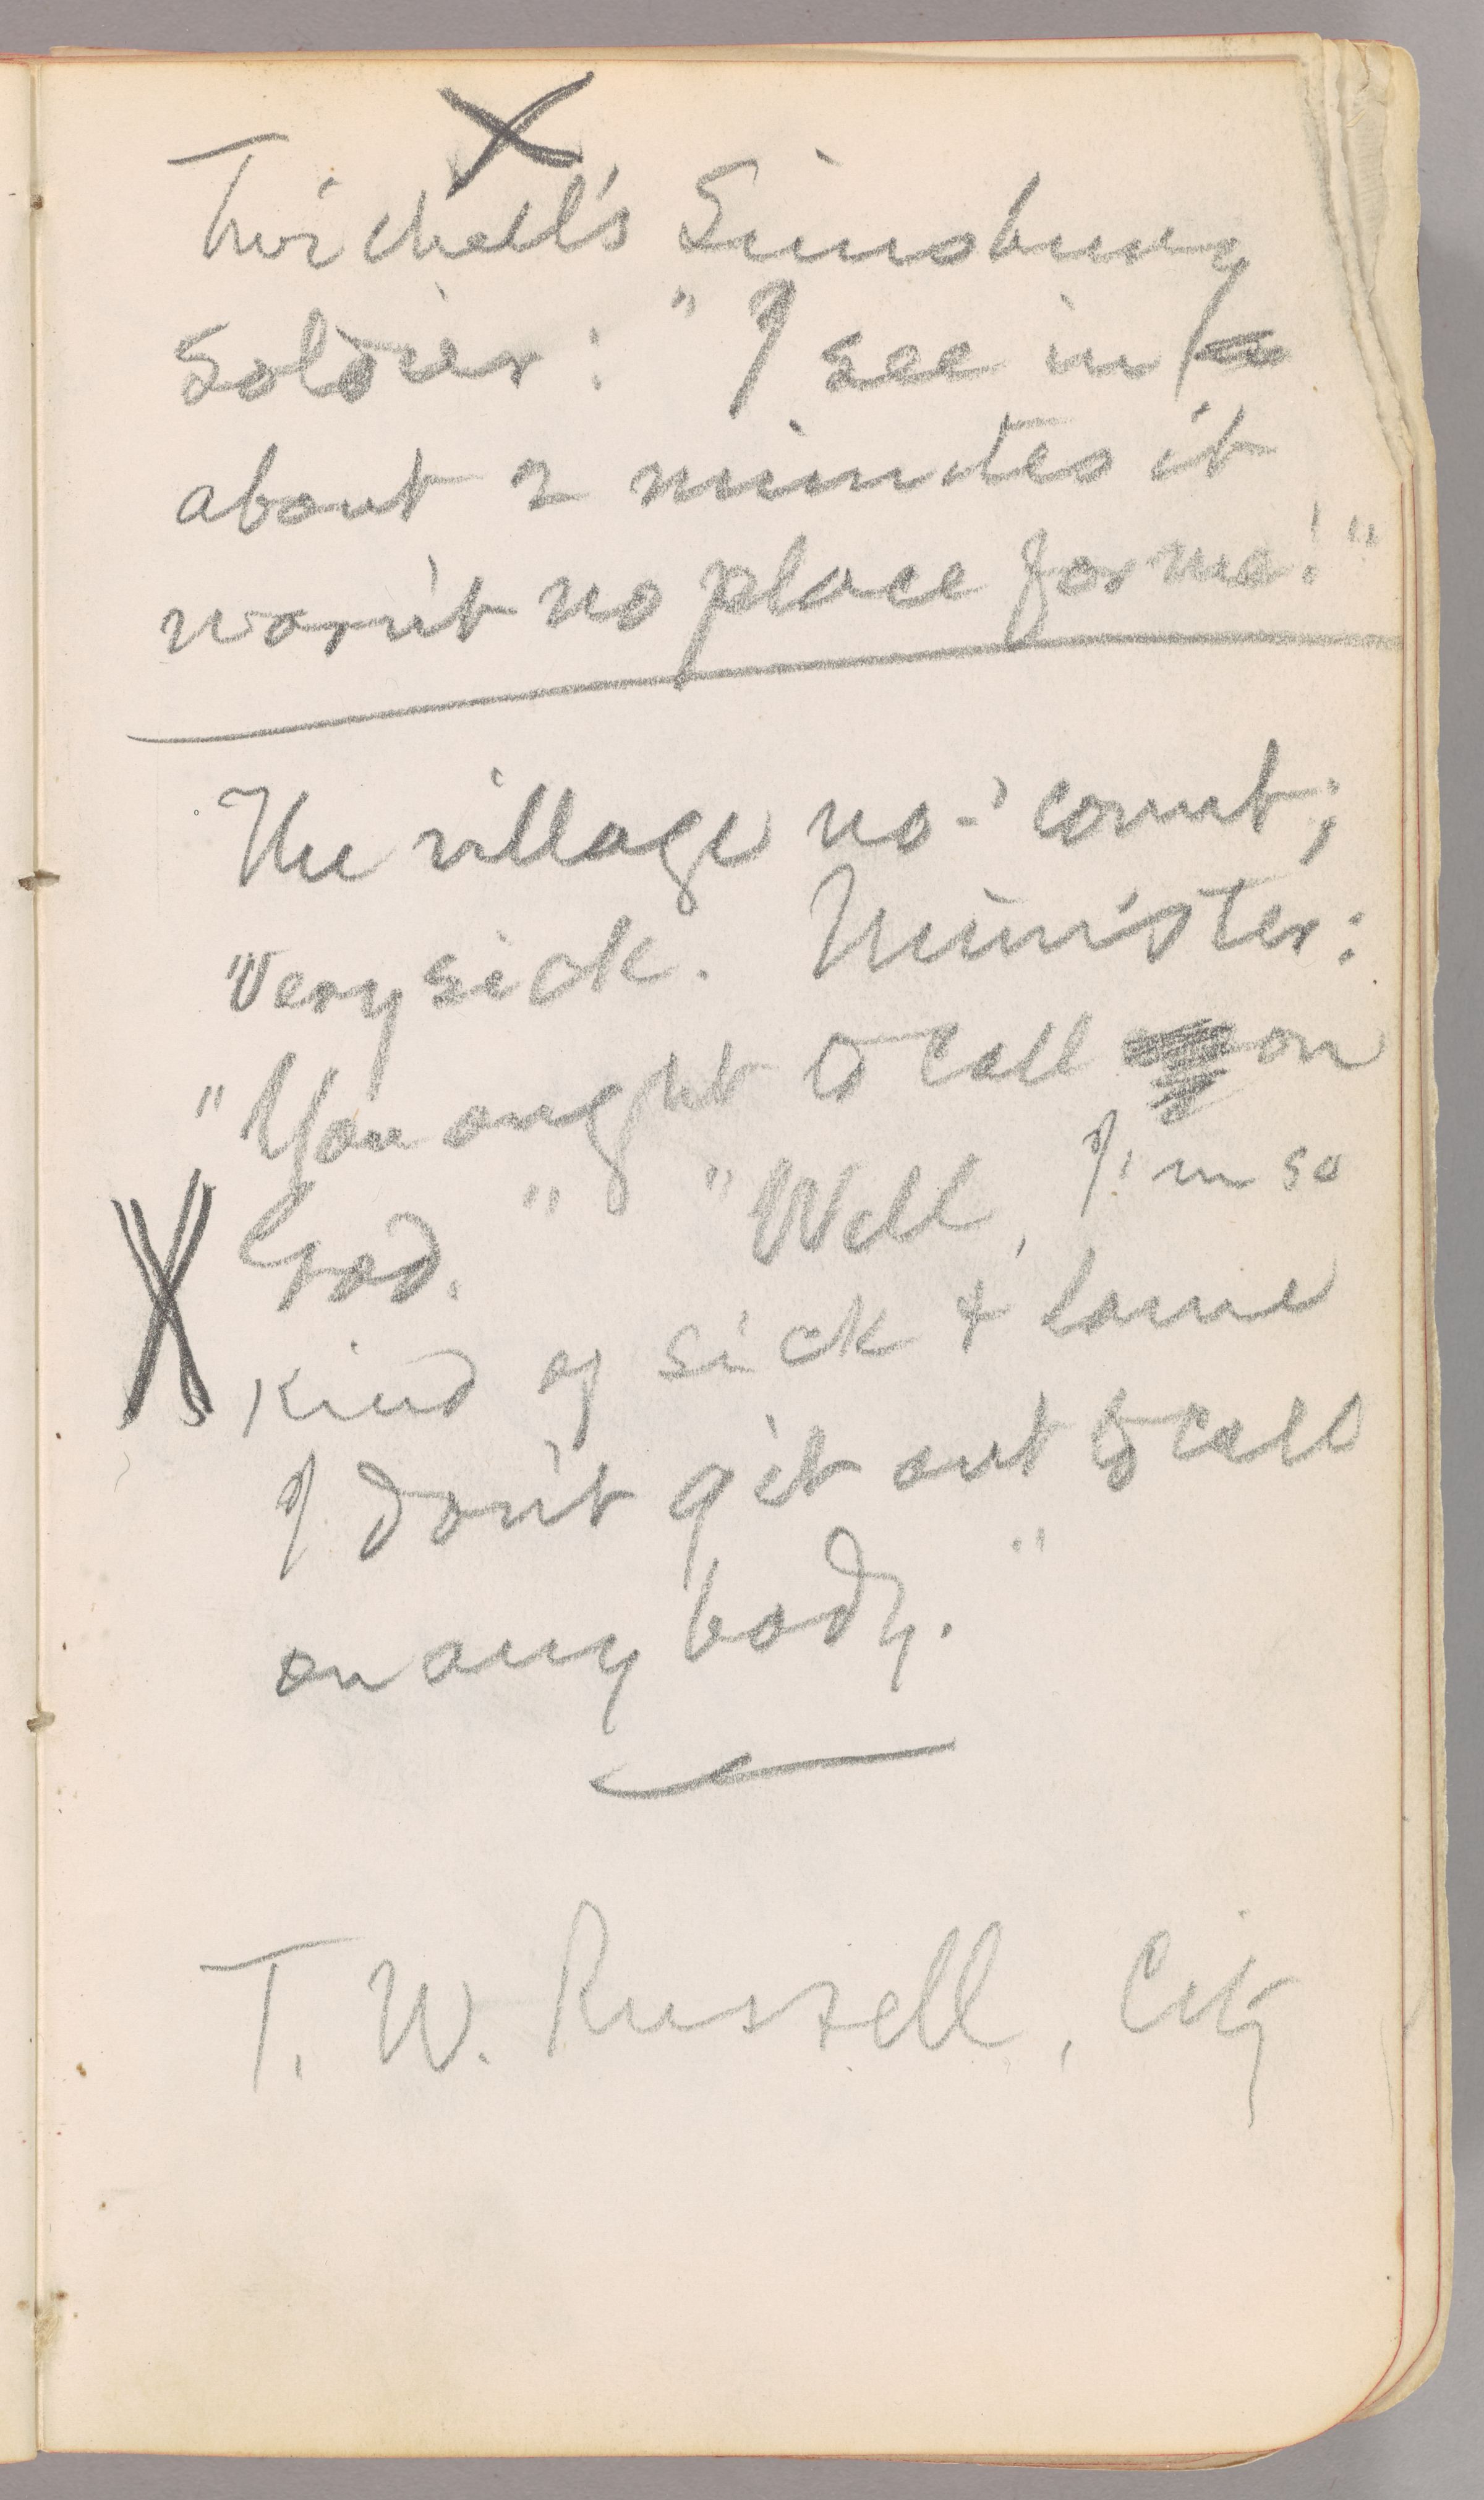 X
Twichell's Simsbury
soldier: "I see in
about 2 minutes it
warn't no place for me!"
The village no-'count;
very sick. Minister:
"You ought to call on
God." "Well, I'm so
X
kind of sick & lame
I don't git out to call
on anybody."
T. W. Russell, City